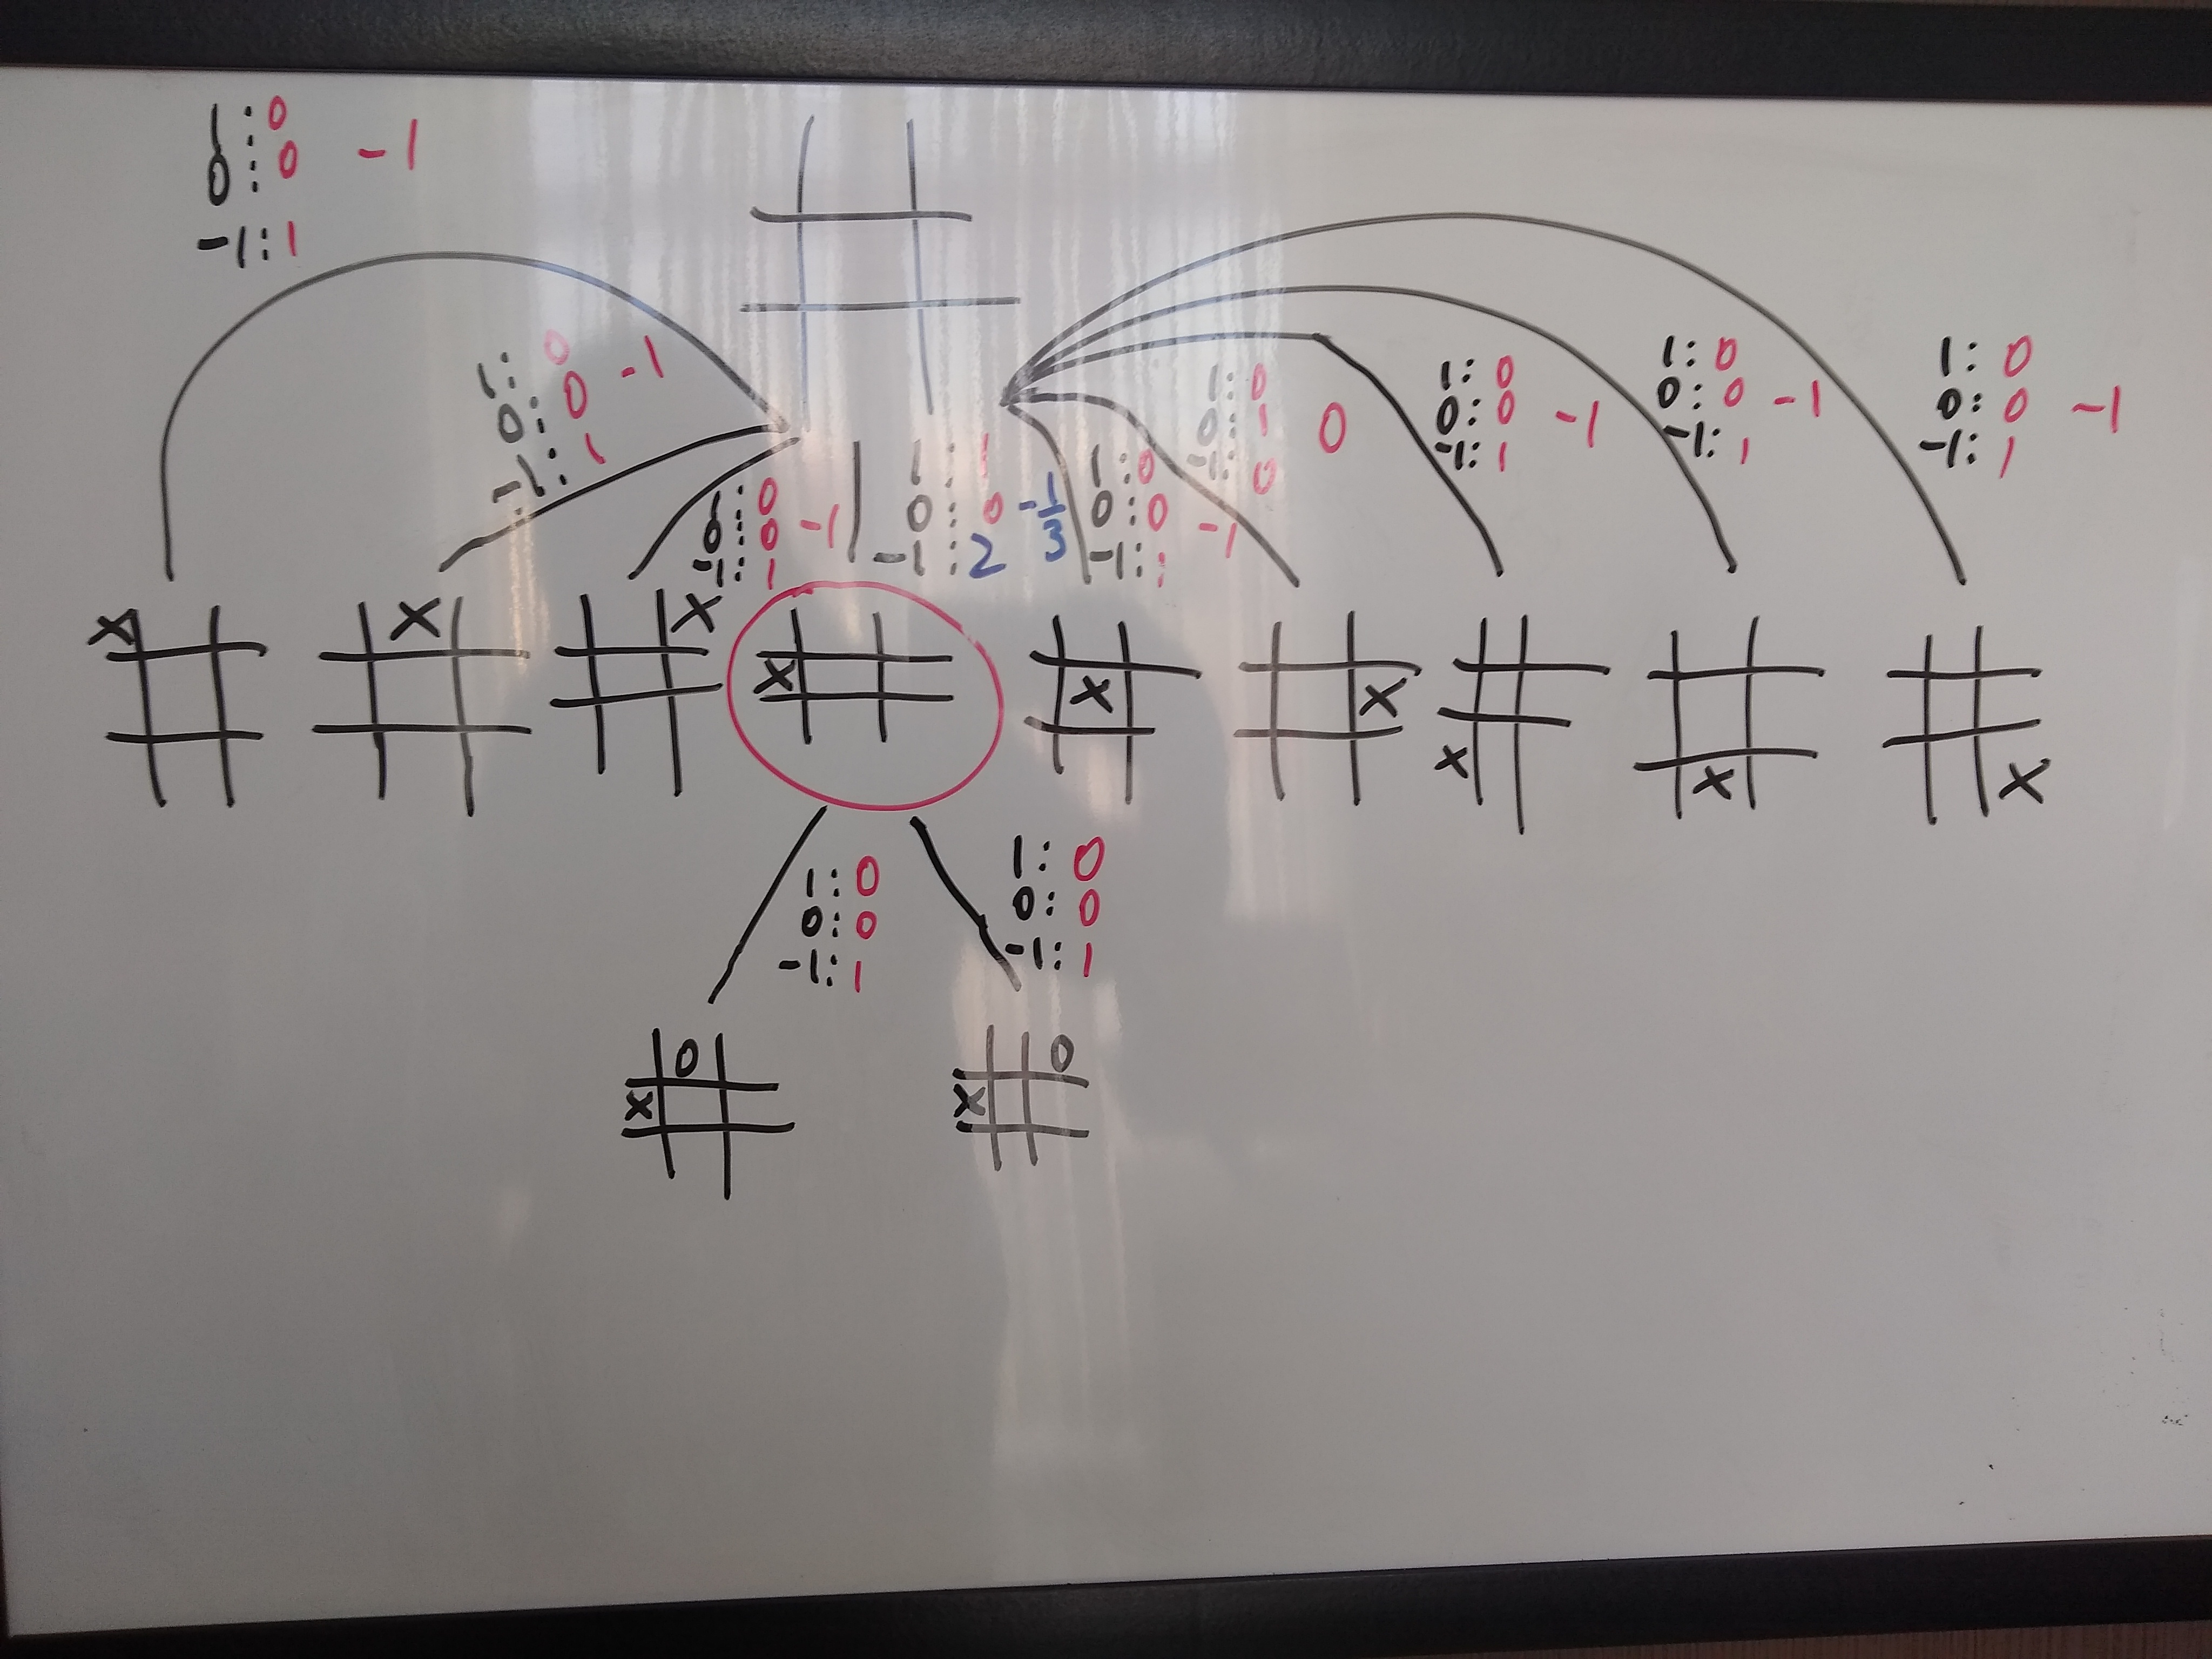 1: 0
0: 0 -1
-1: 1
1: 0
0: 0 -1
-1: 1
1: 0
0: 0 -1
-1: 1
1: 1
0: 0 -1/3
-1: 2
1: 0
0: 0 -1
-1: 1
1: 0
0: 1 0
-1: 0
1: 0
0: 0 -1
-1: 1
1: 0
0: 0 -1
-1: 1
1: 0
0: 0 -1
-1: 1
X X X X X X X X X
1: 0
0: 0
-1: 1
1: 0
0: 0
-1: 1
O
X
O
X